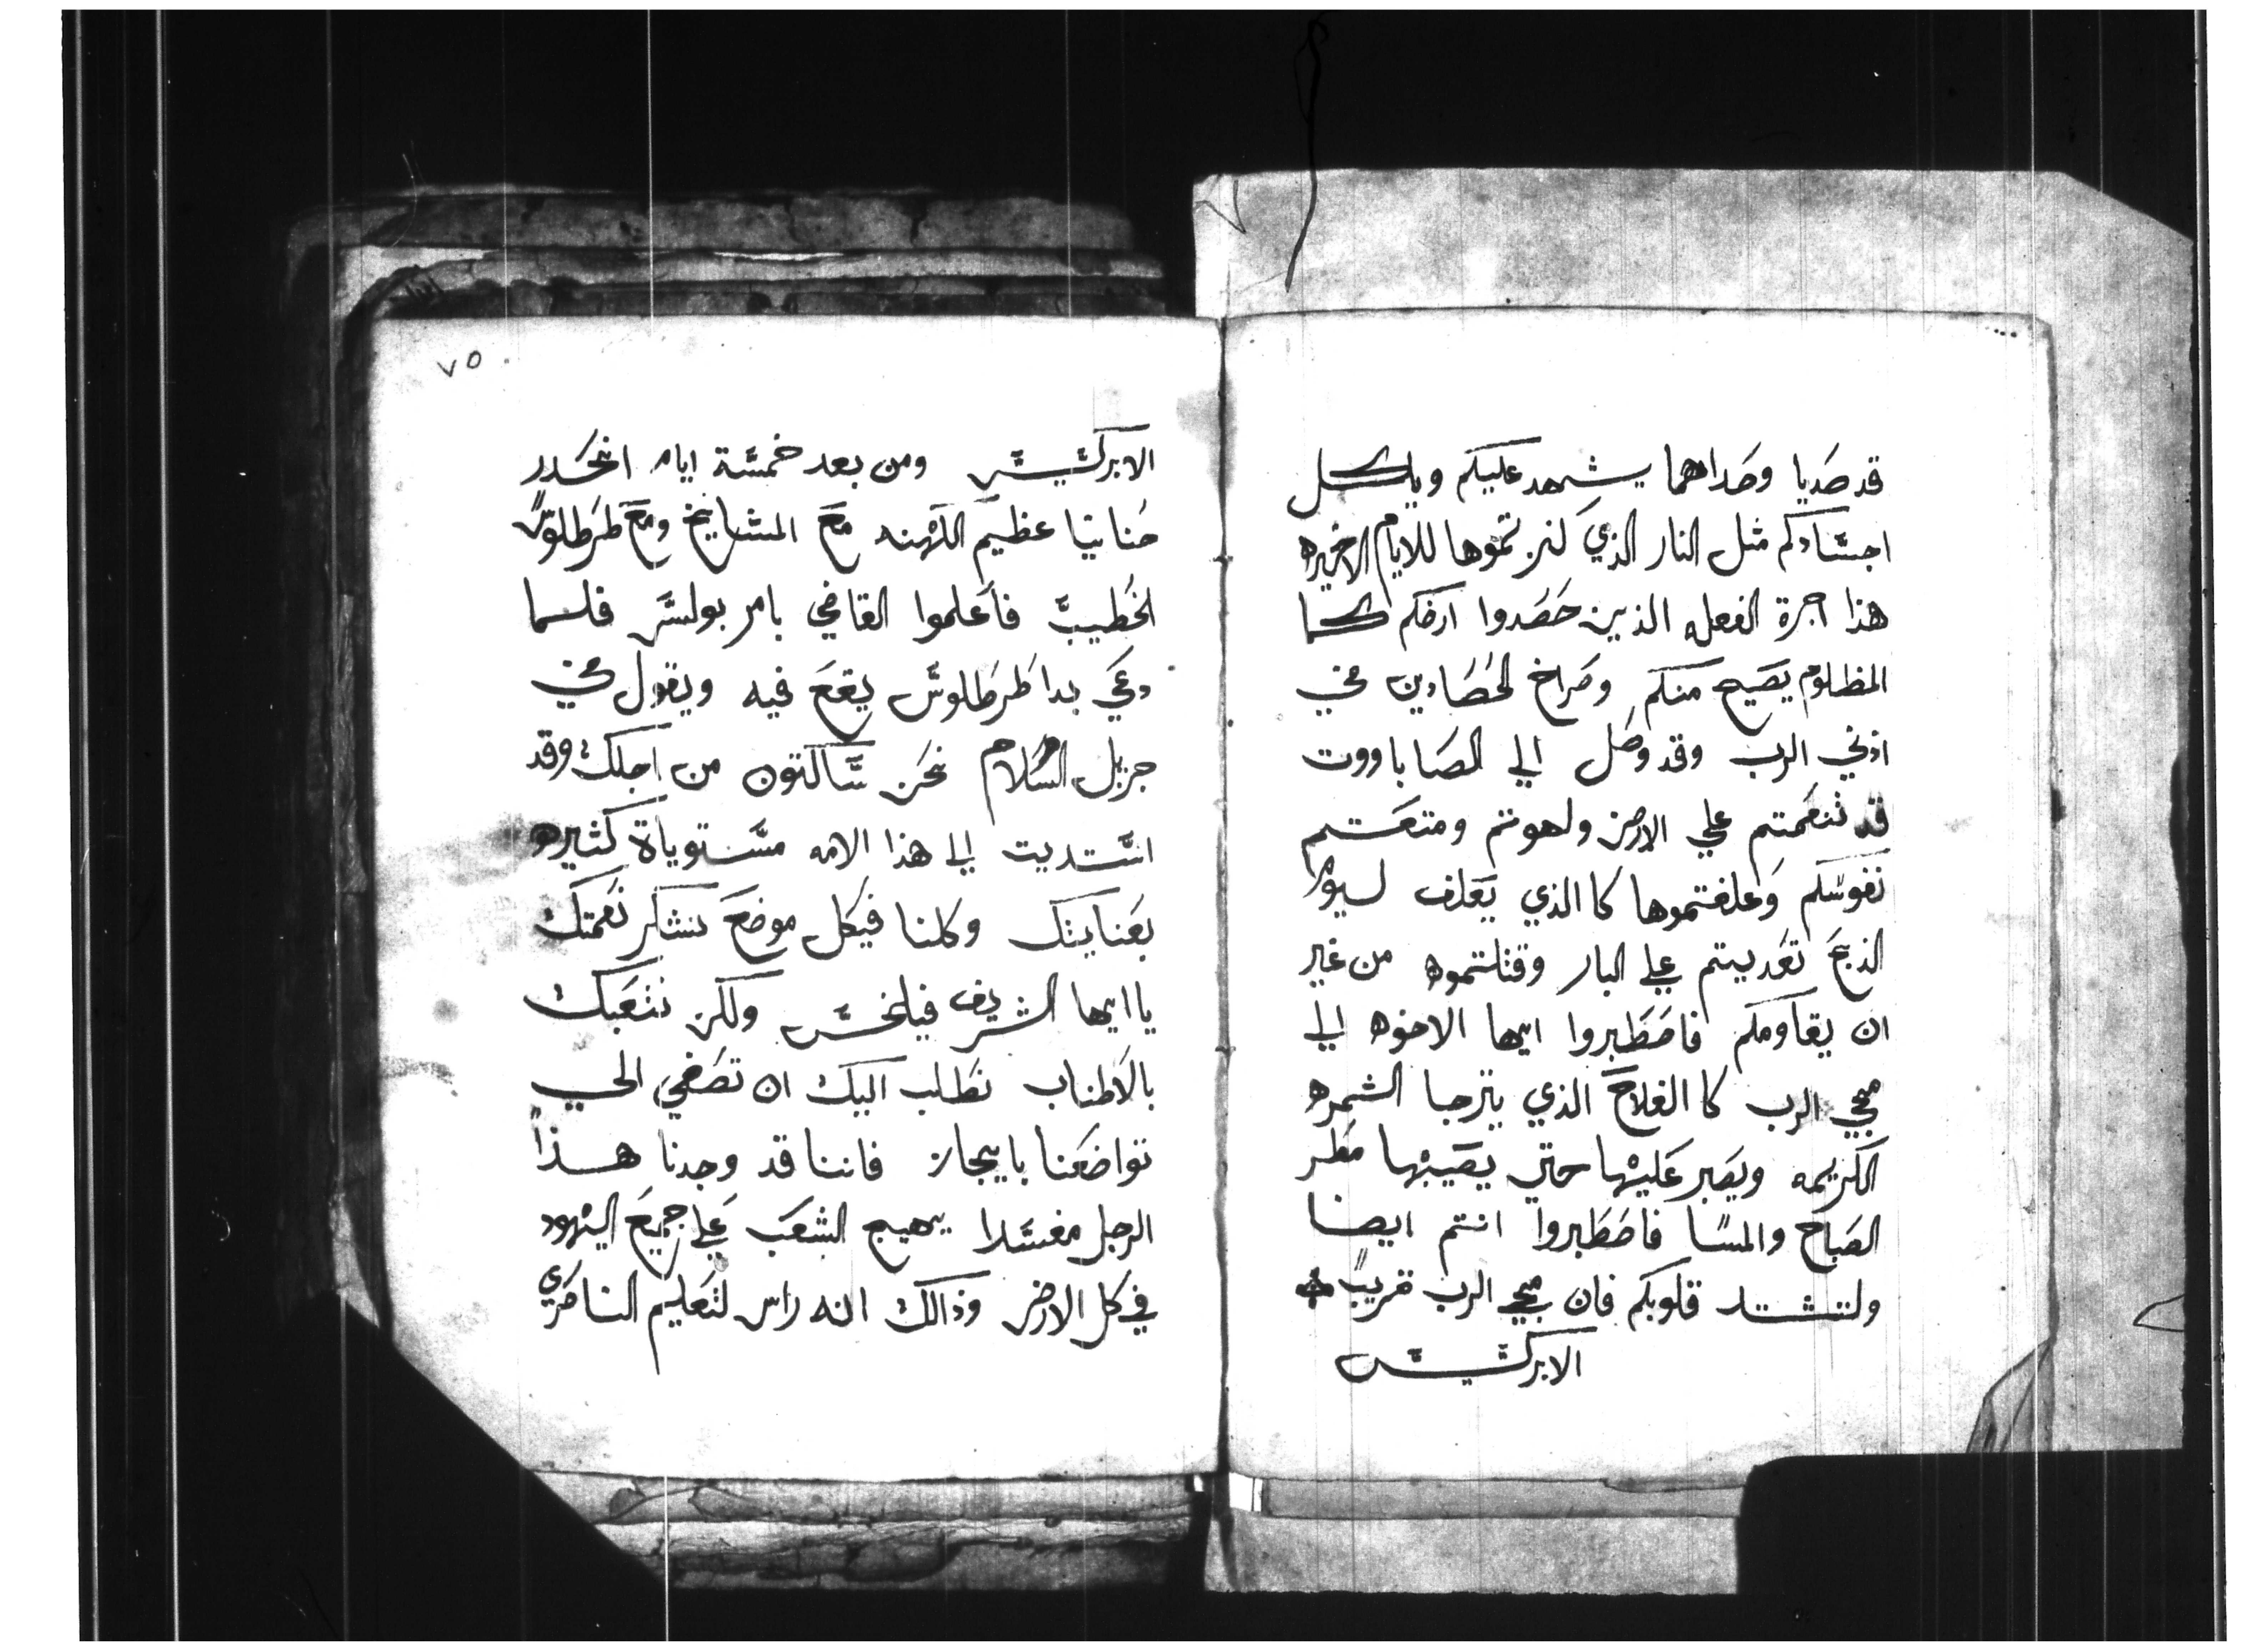 قد صديا وصداهما يشهد عليكم وياكل
اجسادكم مثل النار الذي كنزتموها للايام الاخيره
هذا اجرة الفعله الذين حصدوا ارضكم كما
المظلوم يصيح منكم وصراخ الحصادين في
اذني الرب وقد وصل الي الصاباووت
قد تنعمتم علي الارض ولهوتم ومتعتم
نفوسكم وعلفتموها كا الذي يعلف ليوم
الذبح تعديتم علي البار وقتلتموه من غير
ان يقاومكم فاصطبروا ايها الاخوه الي
مجي الرب كا الفلاح الذي يترجا الثمره
الكريمه ويصبر عليها حتي يصيبها مطر
الصباح والمسا فاصطبروا انتم ايضا
ولتشتد قلوبكم فان مجي الرب قريب
الابركسيس
٧٥
الابركسيس ومن بعد خمسة ايام انحدر
حنانيا عظيم الكهنه مع المشايخ ومع طرطلوس
الخطيب فاعلموا القاضي بامر بولس فلما
دعي بدا طرطلوس يقع فيه ويقول في
جزيل السلام نحن ساكنون من اجلك وقد
استديت الي هذا الامه مستوياة كثيره
بعنايتك وكلنا فيكل موضع نشكر نعمتك
يا ايها الشريف فيلخس ولكن نتعبك
بالاطناب نطلب اليك ان تصغي الي
تواضعنا بايجاز فاننا قد وجدنا هذا
الرجل مفسدا يهيج الشعب علي جميع اليهود
في كل الارض وذالك انه راس لتعليم الناصري